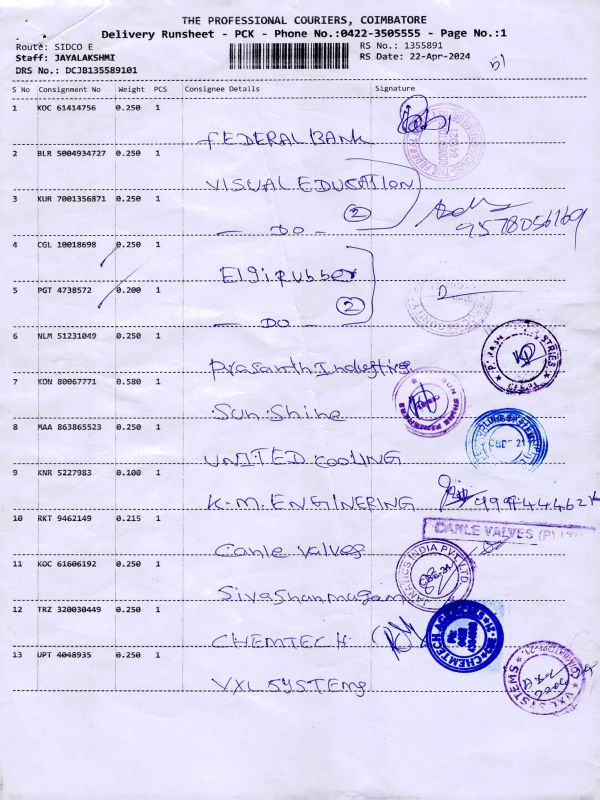 THE PROFESSIONAL COURIERS, COIMBATORE
Delivery Runsheet - PCK - Phone No.:0422-3505555 - Page No.:1
Route: SIDCO E
RS No.: 1355891
Staff: JAYALAKSHMI
RS Date: 22-Apr-2024
DRS No.: DCJB135589101
S No Consignment No Weight PCS Consignee Details Signature
1 KOC 61414756 0.250 1
FEDERAL BANK
2 BLR 5004934727 0.250 1
VISUAL EDUCATION
3 KUR 7001356871 0.250 1
2
9578056169
- DO -
4 CGL 10018698 0.250 1
Elgi rubber
5 PGT 4738572 0.200 1
2
- DO -
6 NLM 51231049 0.250 1
Prasanth Industries
7 KON 80067771 0.580 1
Sun Shine
8 MAA 863865523 0.250 1
CBE 21
UNITED COOLING
9 KNR 5227983 0.100 1
K.M. ENGINERING
10 RKT 9462149 0.215 1
CANLE VALVES (P)
Canle valves
11 KOC 61606192 0.250 1
JANATICS INDIA PVT LTD
CBE-21
Sivashanmugam
12 TRZ 320030449 0.250 1
CHEMTECH
CHEMTECH
13 UPT 4048935 0.250 1
VXL SYSTEMS
VXL SYSTEMS